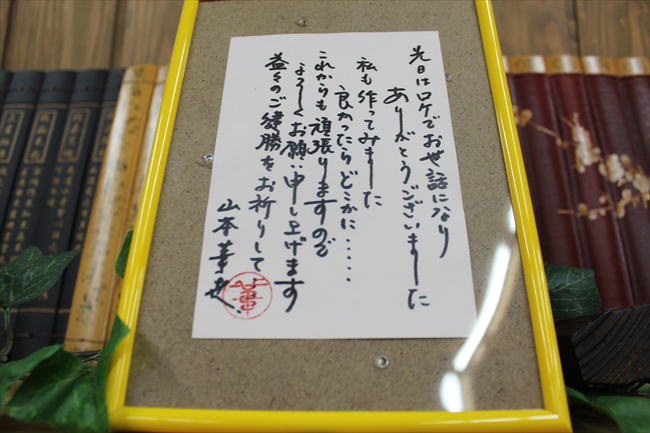 先日はロケでお世話になり
ありがとうございました
私も作ってみました
良かったらどこかに‥‥‥
これからも頑張りますので
よろしくお願い申し上げます
益々のご健勝をお祈りして
山本